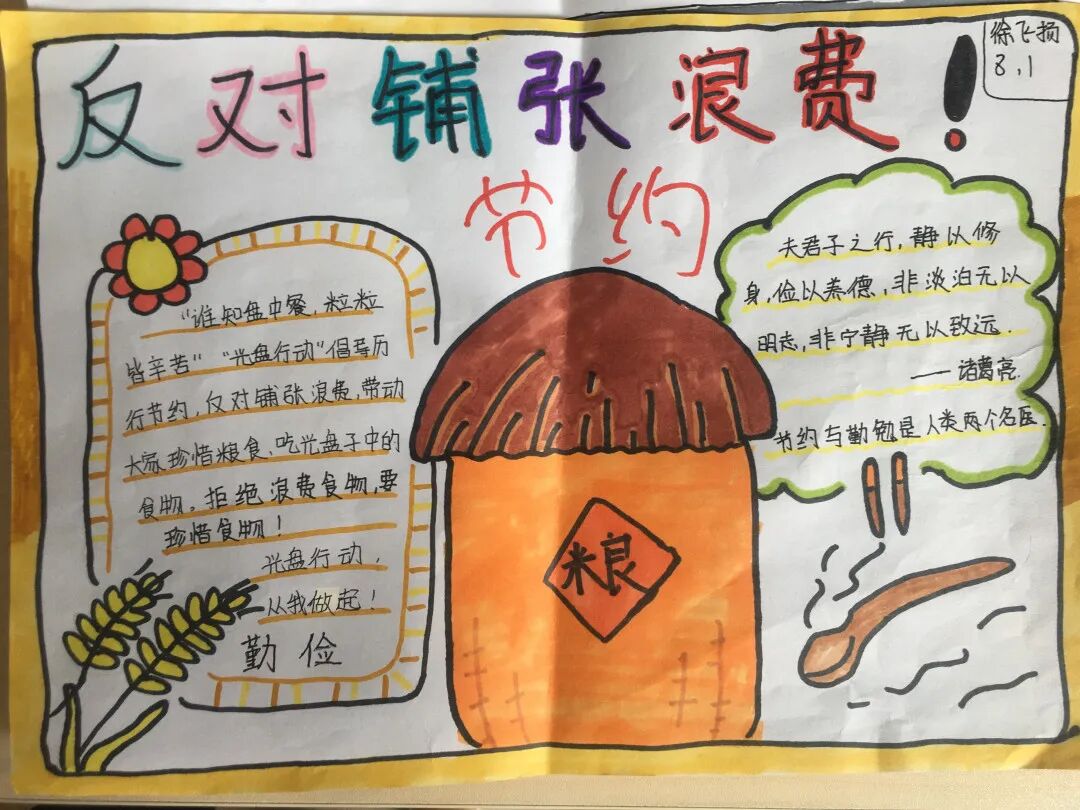 反对铺张浪费!
徐飞扬
8,1
节约
"谁知盘中餐,粒粒
皆辛苦""光盘行动"倡导历
行节约,反对铺张浪费,带动
大家珍惜粮食、吃光盘子中的
食物。拒绝浪费食物,要
珍惜食物!
光盘行动,
从我做起!
勤俭
粮
夫君子之行,静以修
身,俭以养德,非淡泊无以
明志,非宁静无以致远.
——诸葛亮.
节约与勤勉是人类两个名医.